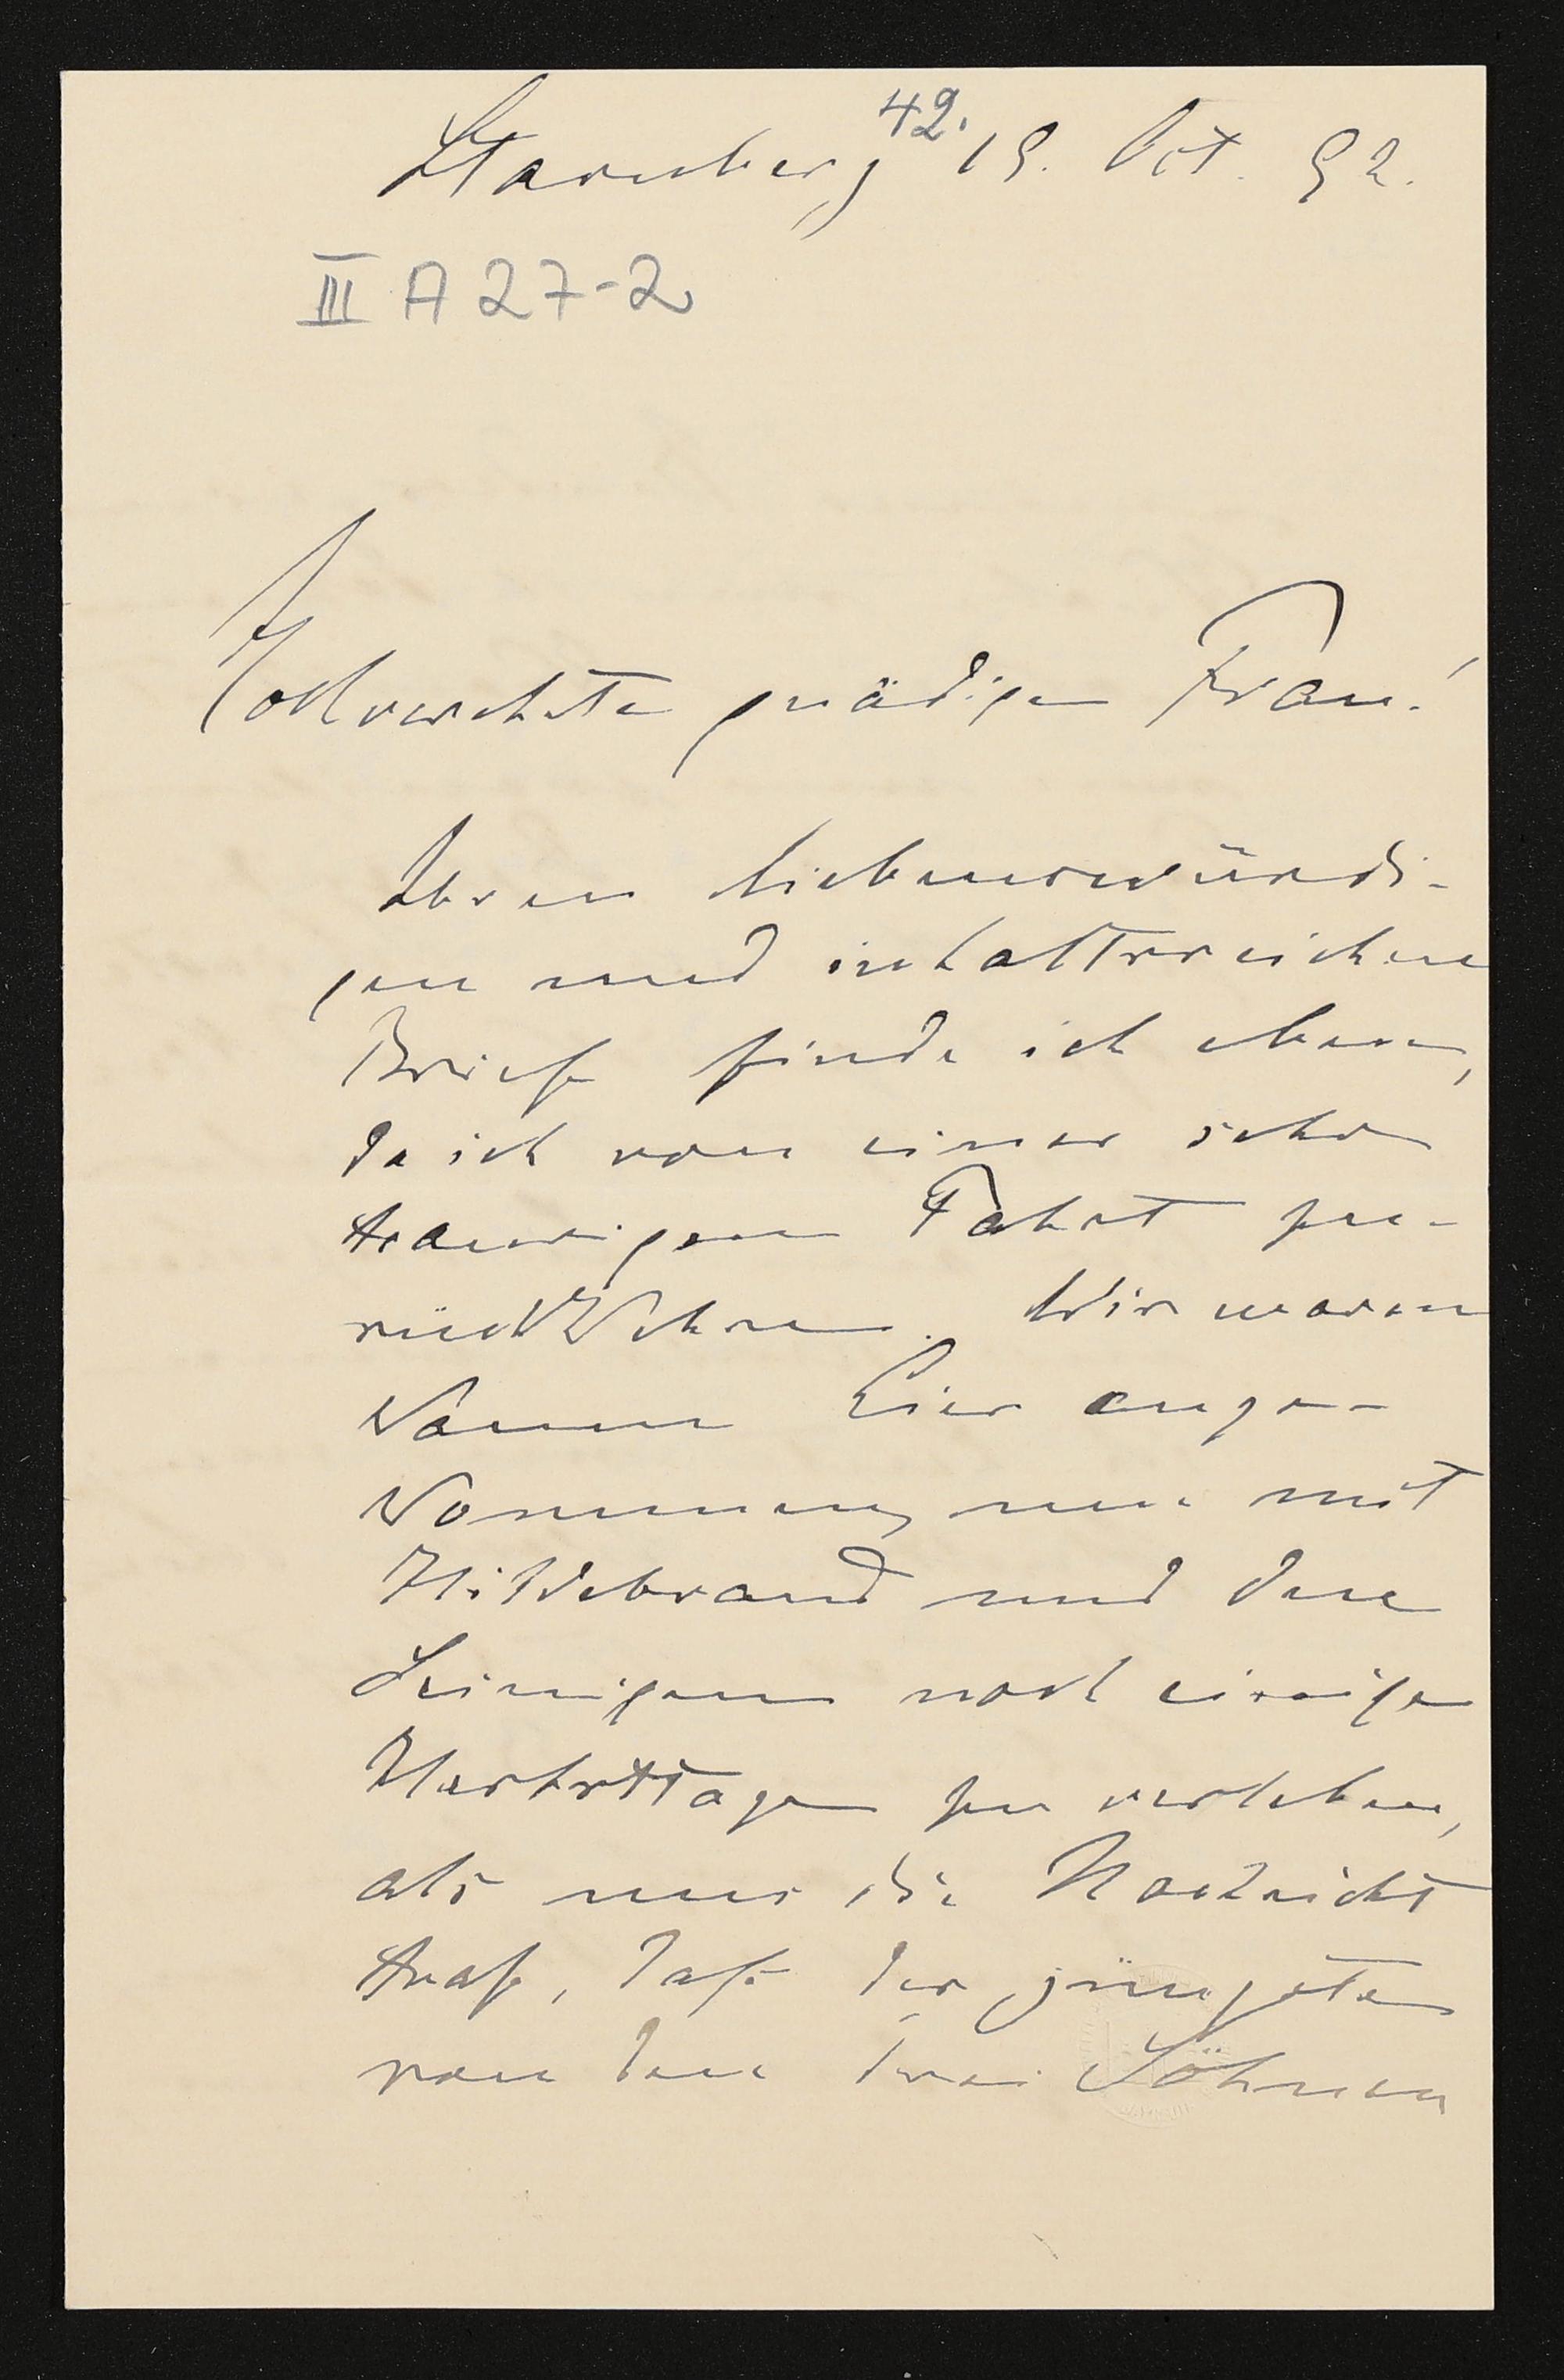 42.
Starnberg 19. Oct. 92.
III A 27-2
Hochverehrte gnädige Frau!
Ihren liebenswürdi-
gen und inhaltsreichen
Brief finde ich eben,
da ich von einer sehr
traurigen Fahrt zu-
rückkehre. Wir waren
kaum hier ange-
kommen, um mit
Hildebrand und den
Seinigen noch einige
Herbsttage zu verleben,
als uns die Nachricht
traf, daß der jüngste
von den drei Söhnen